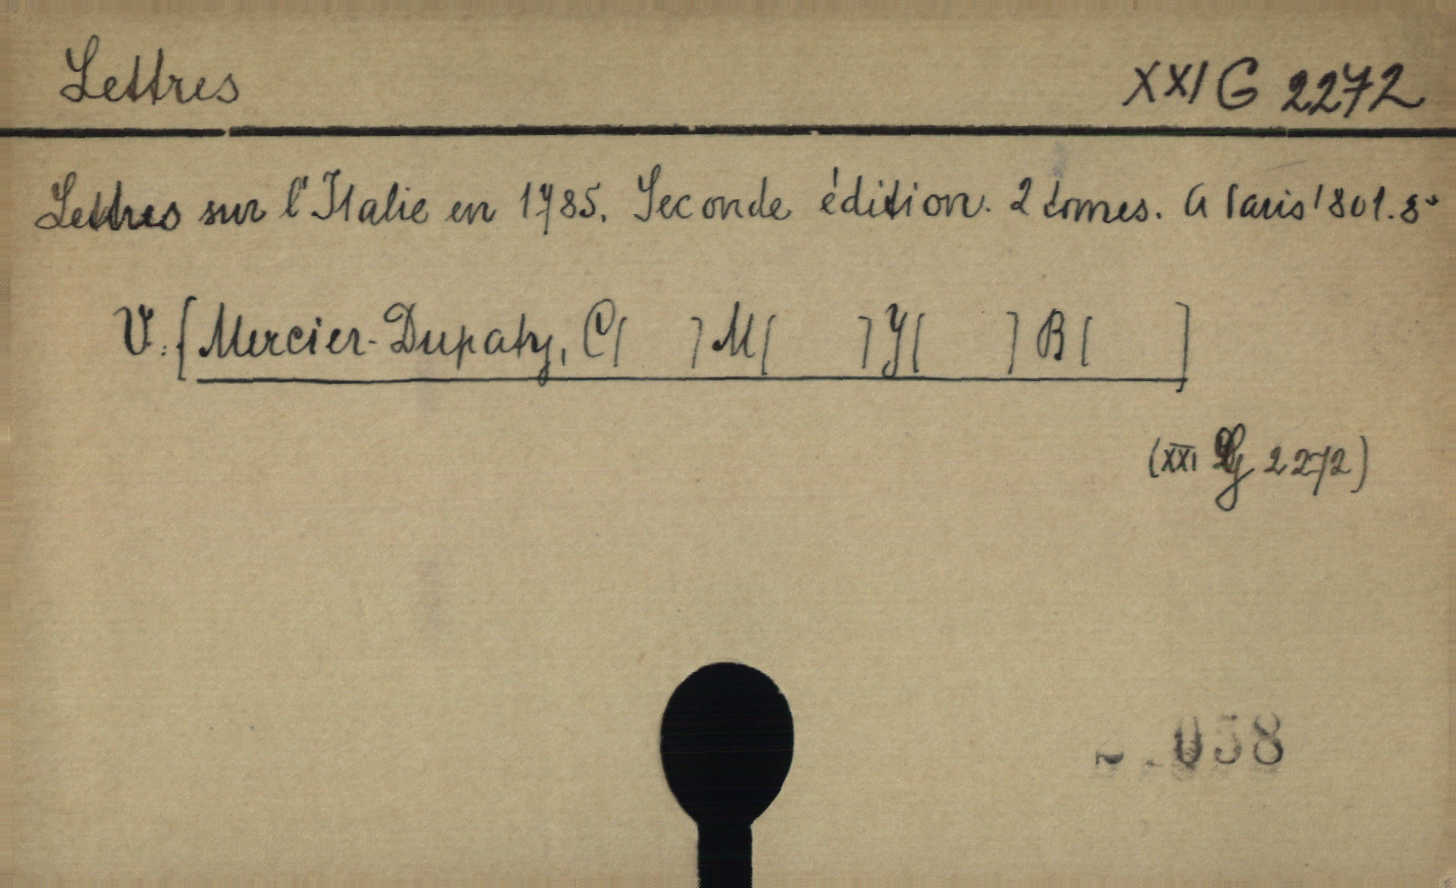 Lettres XXI G 2272
Lettres sur l'Italie en 1785. Seconde édition. 2 tomes. A Paris 1801. 8°
V. [Mercier-Dupaty, C[ ] M[ ] J[ ] B[ ]
(XXI G 2272)
058